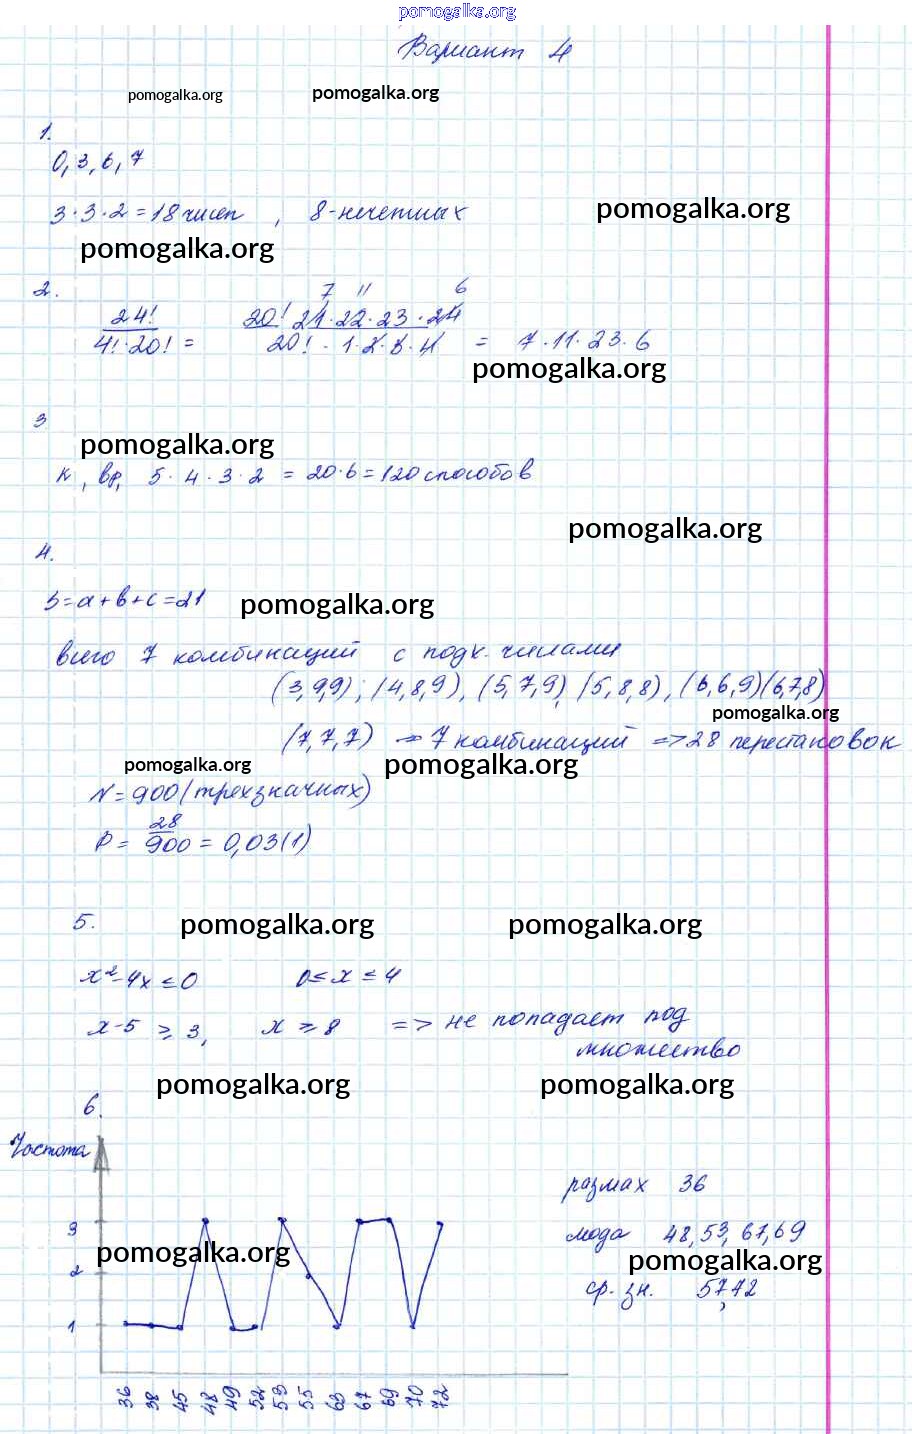 pomogalka.org
Вариант 4
pomogalka.org pomogalka.org
1.
0, 3, 6, 7
3·3·2=18 чисел , 8-нечетных
pomogalka.org
pomogalka.org
2. 7 11 6
24! 20! 21·22·23·24
4!·20! = 20!·1·2·3·4 = 7·11·23·6
pomogalka.org
3
pomogalka.org
К, вр, 5·4·3·2 = 20·6=120 способов
pomogalka.org
4.
S=a+b+c=21 pomogalka.org
всего 7 комбинаций с подх. числами
(3,9,9); (4,8,9), (5,7,9), (5,8,8), (6,6,9)(6,7,8)
pomogalka.org
(7,7,7) → 7 комбинаций => 28 перестановок
pomogalka.org pomogalka.org
N=900 (трехзначных)
P = 28/900 = 0,03(1)
5. pomogalka.org pomogalka.org
x²-4x ≤ 0 0 ≤ x ≤ 4
x-5 ≥ 3, x ≥ 8 => не попадает под
множество
pomogalka.org pomogalka.org
6.
Частота
размах 36
3
мода 48, 53, 67, 69
pomogalka.org pomogalka.org
2
ср. зн. 57,42
1
36 38 45 48 49 52 53 55 63 67 69 70 72